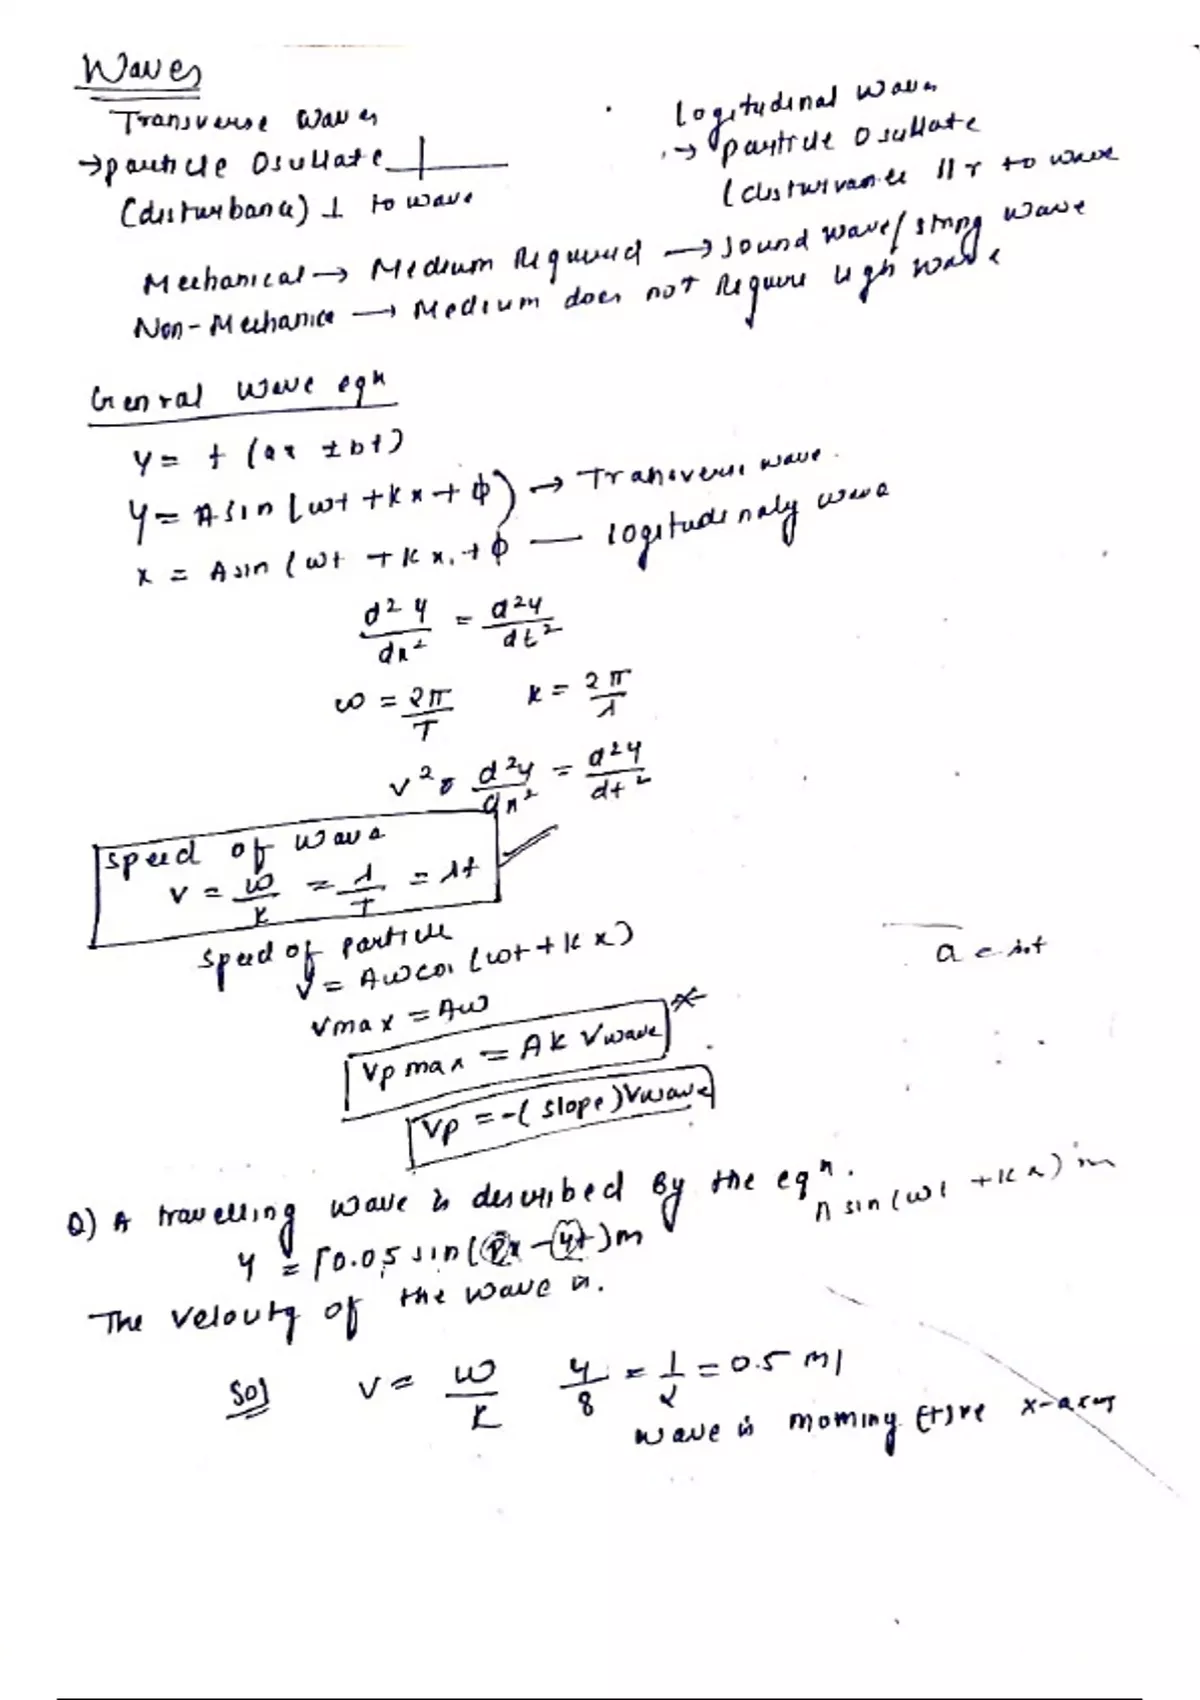 Waves
Transverse Waves
→ particle Oscillate
(disturbance) ⊥ to wave
Logitudinal Waves
→ particle Oscillate
(disturvance ||r to wave
Mechanical → Medium Required → sound wave/string wave
Non-Mechanica → Medium does not Require ligh wave
Genral wave eqn
y = f (ax ± bt)
y = A sin (ωt + kx + ϕ) → Transverse wave.
x = A sin (ωt + kx + ϕ — logitudenaly wave
d²y/dx² = d²y/dt²
ω = 2π/T k = 2π/λ
v² d²y/dx² = d²y/dt²
speed of wave
v = ω/k = λ/T = λf
speed of particle
v = Aω cos (ωt + kx)
a = int
vmax = Aω
vp max = AK Vwave
vp = -(slope) Vwave
Q) A travelling wave is described by the eqn.
A sin (ωt + kx) m
y = [0.05 sin (8x - 4t) m
The velouty of the wave is.
Sol v = ω/k 4/8 = 1/2 = 0.5 m/
wave is moming (+)ve x-axis